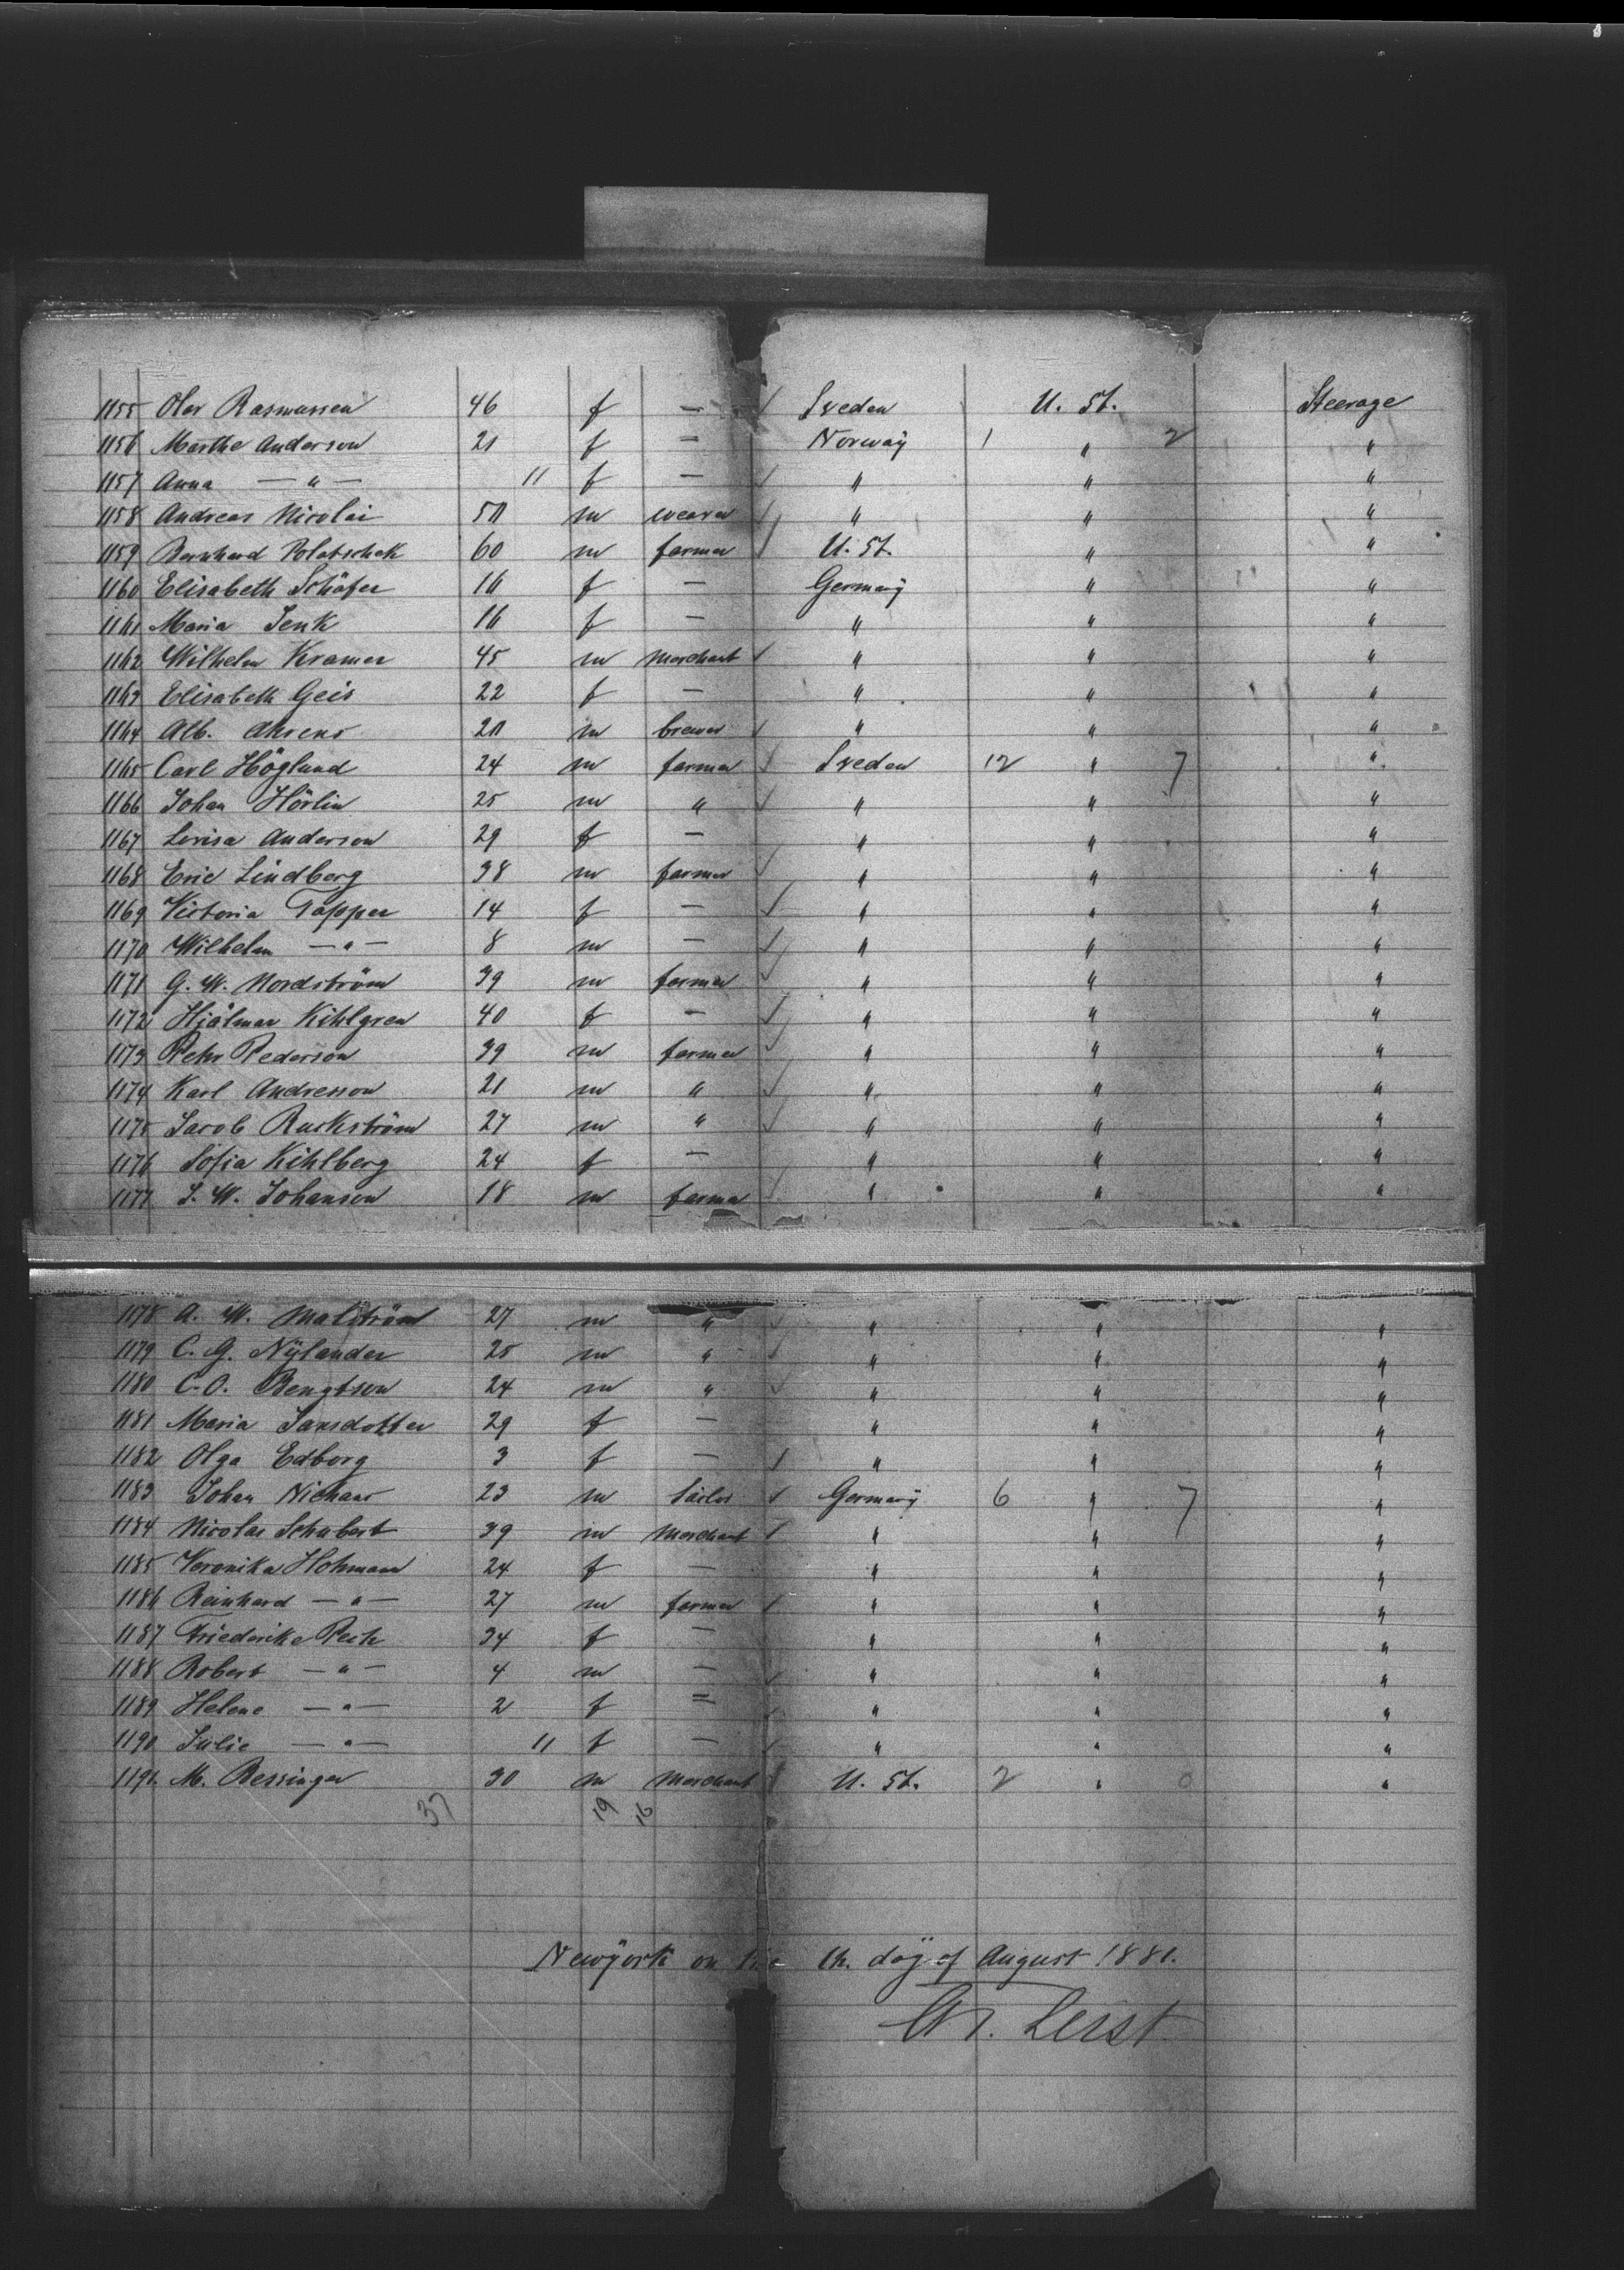 1155 Olav Rasmussen 46 f — Sveden U. St. Steerage
1156 Marthe Anderson 21 f — Norway 1 " 2 "
1157 Anna — " — 11 f — " " "
1158 Andreas Nicolai 50 m weaver " " "
1159 Bernhard Polatschek 60 m farmer U. St. " "
1160 Elisabeth Schäfer 16 f — Germany " "
1161 Maria Senk 16 f — " " "
1162 Wilhelm Kramer 45 m Merchant " " "
1163 Elisabeth Geis 22 f — " " "
1164 Alb. Ahrens 20 m brewer " " "
1165 Carl Höglund 24 m farmer Sveden 12 " 7 "
1166 Johan Hörlin 25 m " " " "
1167 Lovisa Anderson 29 f — " " "
1168 Eric Lindberg 38 m farmer " " "
1169 Victoria Tapper 14 f — " " "
1170 Wilhelm — " — 8 m — " " "
1171 G. W. Nordström 39 m farmer " " "
1172 Hjalmar Kihlgren 40 f — " " "
1173 Pehr Pederson 39 m farmer " " "
1174 Karl Andresson 21 m " " " "
1175 Jacob Ruckström 27 m " " " "
1176 Sofia Kihlberg 24 f — " " "
1177 J. W. Johanson 18 m farmer " " "
1178 A. W. Malström 27 m " " " "
1179 C. G. Nylander 25 m " " " "
1180 C. O. Bengtson 24 m " " " "
1181 Maria Jansdotter 29 f — " " "
1182 Olga Edborg 3 f — " " "
1183 Johan Niehaus 23 m Sailor Germany 6 " 7 "
1184 Nicolai Schubert 39 m Merchant " " "
1185 Veronika Hohmann 24 f — " " "
1186 Reinhard — " — 27 m farmer " " "
1187 Friederike Pech 34 f — " " "
1188 Robert — " — 4 m — " " "
1189 Helene — " — 2 f — " " "
1190 Julie — " — 11 f — " " "
1191 M. Bessinger 30 m Merchant U. St. 2 " 0 "
37 19 16
Newyork on the th. day of August 1881.
Chr. Leist